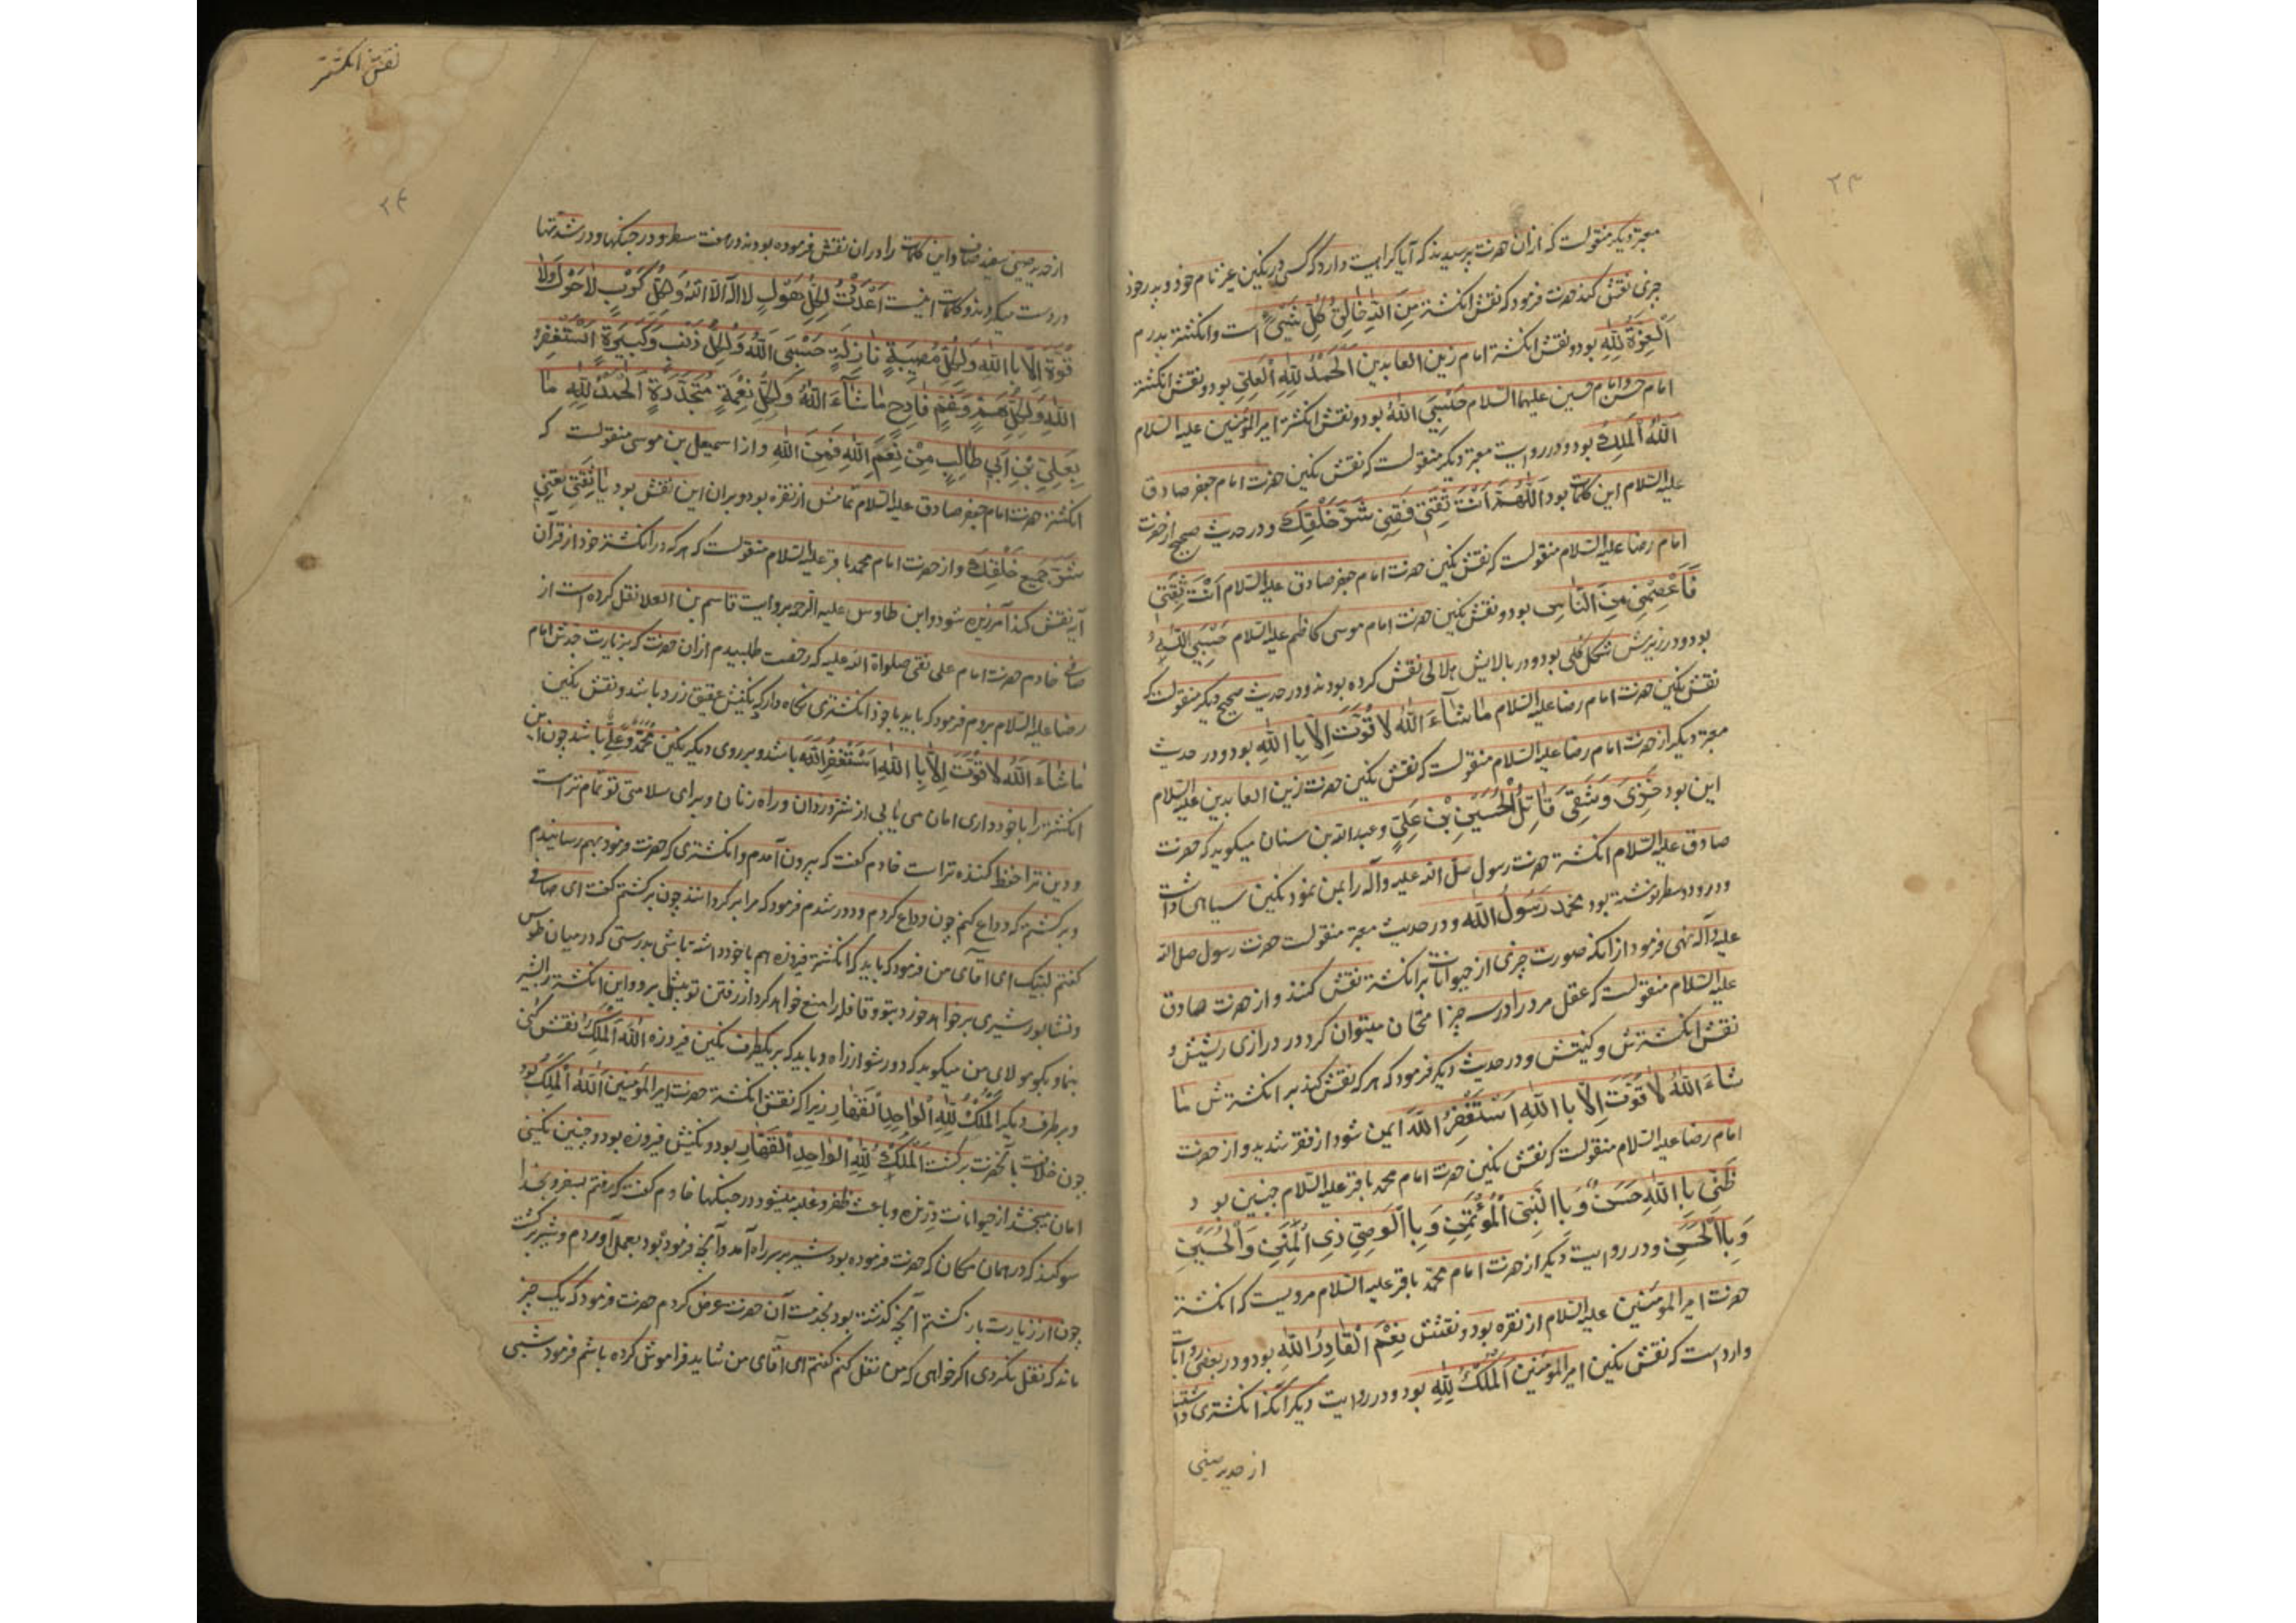 ۲۳
معتبر دیگر منقولست که ازان حضرت پرسیدند که آیا کراهیت دارد که کسی در نکین غیر نام خود و پدر خود
چیزی نقش کند حضرت فرمود که نقش انکشتر مِنَ اللّٰهِ خَالِقُ کُلِّ شَیْءٍ است و انکشتر پدرم
اَلْعِزَّةُ لِلّٰهِ بود و نقش انکشتر امام زین العابدین اَلْحَمْدُ لِلّٰهِ الْعَلِیِّ بود و نقش انکشتر
امام حسن و امام حسین علیهما السلام حَسْبِیَ اللّٰهُ بود و نقش انکشتر امیر المؤمنین علیه السلام
اَللّٰهُ الْمَلِكُ بود و در روایت معتبر دیگر منقولست که نقش نکین حضرت امام جعفر صادق
علیه السلام این کلمات بود اَللّٰهُمَّ اَنْتَ ثِقَتِی فَقِنِی شَرَّ خَلْقِكَ و در حدیث صحیح از حضرت
امام رضا علیه السلام منقولست که نقش نکین حضرت امام جعفر صادق علیه السلام اَنْتَ ثِقَتِی
فَاعْصِمْنِی مِنَ النَّاسِ بود و نقش نکین حضرت امام موسی کاظم علیه السلام حَسْبِیَ اللّٰهُ
بود و در زیرش شکل کلی بود و در بالایش هلالی نقش کرده بودند و در حدیث صحیح دیکر منقولست که
نقش نکین حضرت امام رضا علیه السلام مَا شَآءَ اللّٰهُ لَا قُوَّتَ اِلَّا بِاللّٰهِ بود و در حدیث
معتبر دیکر از حضرت امام رضا علیه السلام منقولست که نقش نکین حضرت زین العابدین علیه السلام
این بود خَزِیَ وَشَقِیَ قَاتِلُ الْحُسَیْنِ بْنِ عَلِیٍّ و عبد الله بن سنان میکوید که حضرت
صادق علیه السلام انکشتر حضرت رسول صلی الله علیه وآله را بمن نمود نکین سیاهی داشت
و در دو سطر نوشته بود محمد رَسُولُ اللّٰه و در حدیث معتبر منقولست حضرت رسول صلی الله
علیه وآله نهی فرمود از آنکه صورت چیزی از حیوانات بر انکشتر نقش کنند و از حضرت صادق
علیه السلام منقولست که عقل مرد را در سه چیز امتحان میتوان کرد در درازی ریشش و
نقش انکشترش و کنیتش و در حدیث دیکر فرمود که هر که نقش کند بر انکشترش مَا
شَاءَ اللّٰهُ لَا قُوَّتَ اِلَّا بِاللّٰهِ اَسْتَغْفِرُ اللّٰهَ ایمن شود از فقر شدید و از حضرت
امام رضا علیه السلام منقولست که نقش نکین حضرت امام محمد باقر علیه السلام چنین بود
ظَنِّی بِاللّٰهِ حَسَنٌ وَ بِالنَّبِیِّ الْمُؤْتَمَنِ وَ بِالْوَصِیِّ ذِی الْمِنَنِ وَالْحُسَیْنِ
وَ بِالْحَسَنِ و در روایت دیکر از حضرت امام محمد باقر علیه السلام مرویست که انکشتر
حضرت امیر المؤمنین علیه السلام از نقره بود و نقشش نِعْمَ الْقَادِرُ اللّٰهُ بود و در بعضی روایات
وارد است که نقش نکین امیر المؤمنین اَلْمُلْكُ لِلّٰهِ بود و در روایت دیکر آنکه انکشتری داشتند
از حدید صینی
نقش انکشتر
۲۴
از حدید صینی سفید صاف و این کلمات را در ان نقش فرموده بودند در هفت سطر و در جنکها و در شدتها
در دست میکردند و کلمات اینست اَعْدَدْتُ لِکُلِّ هَوْلٍ لَا اِلٰهَ اِلَّا اللّٰهُ وَلِکُلِّ کَرْبٍ لَا حَوْلَ وَلَا
قُوَّةَ اِلَّا بِاللّٰهِ وَلِکُلِّ مُصِیبَةٍ نَازِلَةٍ حَسْبِیَ اللّٰهُ وَلِکُلِّ ذَنْبٍ وَکَبِیرَةٍ اَسْتَغْفِرُ
اللّٰهَ وَلِکُلِّ هَمٍّ وَغَمٍّ فَادِحٍ مَا شَآءَ اللّٰهُ وَلِکُلِّ نِعْمَةٍ مُتَجَدِّدَةٍ اَلْحَمْدُ لِلّٰهِ مَا
بِعَلِیِّ بْنِ اَبِی طَالِبٍ مِنْ نِعَمِ اللّٰهِ فَمِنَ اللّٰهِ و از اسمعیل بن موسی منقولست که
انکشتر حضرت امام جعفر صادق علیه السلام تمامش از نقره بود و بران این نقش بود یَا ثِقَتِی قِنِی
شَرَّ جَمِیعِ خَلْقِكَ و از حضرت امام محمد باقر علیه السلام منقولست که هر که در انکشتر خود از قرآن
آیه نقش کند آمرزیده شود و ابن طاوس علیه الرحمه بروایت قاسم بن العلا نقل کرده است از
صافی خادم حضرت امام علی نقی صلواة الله علیه که رخصت طلبیدم از ان حضرت که بزیارت جدش امام
رضا علیه السلام بروم فرمود که باید با خود انکشتری نکاه دار که نکینش عقیق زرد باشد و نقش نکین
مَا شَاءَ اللّٰهُ لَا قُوَّتَ اِلَّا بِاللّٰهِ اَسْتَغْفِرُ اللّٰهَ باشد و بر روی دیکر نکین مُحَمَّدٌ وَعَلِیٌّ باشد چون این
انکشتر را با خود داری امان می یابی از شر دزدان و راه زنان و برای سلامتی تو تمام تر است
و دین ترا حفظ کننده تر است خادم کفت که بیرون آمدم و انکشتری که حضرت فرمود بهم رسانیدم
و برکشتم که وداع کنم چون وداع کردم و دور شدم فرمود که مرا برکردانند چون برکشتم کفت ای صافی
کفتم لبیک ای آقای من فرمود که باید که انکشتر فیروزه هم با خود داشته باشی بدرستی که در میان طوس
و نشابور شیری بر خواهد خورد بتو و قافله را منع خواهد کرد از رفتن تو پیش برو و این انکشتر را بشیر
بنما و بکو مولای من میکوید که دور شو از راه و باید که بر یکطرف نکین فیروزه اَللّٰهُ الْمَلِكُ را نقش کنی
و بر طرف دیکر اَلْمُلْكُ لِلّٰهِ الْوَاحِدِ الْقَهَّارِ زیرا که نقش انکشتر حضرت امیر المؤمنین اَللّٰهُ الْمَلِكُ بود
چون خلافت با آنحضرت برکشت اَلْمُلْكُ لِلّٰهِ الْوَاحِدِ الْقَهَّارِ بود و نکینش فیروزه بود و چنین نکینی
امان میبخشد از حیوانات درنده و باعث ظفر و غلبه میشود در جنکها خادم کفت که رفتم بسفر و بخدا
سوکند که در همان مکان که حضرت فرموده بود شیر بر سر راه آمد و آنچه فرموده بود بعمل آوردم و شیر برکشت
چون از زیارت بازکشتم آنچه کذشته بود بخدمت آن حضرت عرض کردم حضرت فرمود که یک چیز
ماند که نقل نکردی اکر خواهی که من نقل کنم کفتم ای آقای من شاید فراموش کرده باشم فرمود شبی